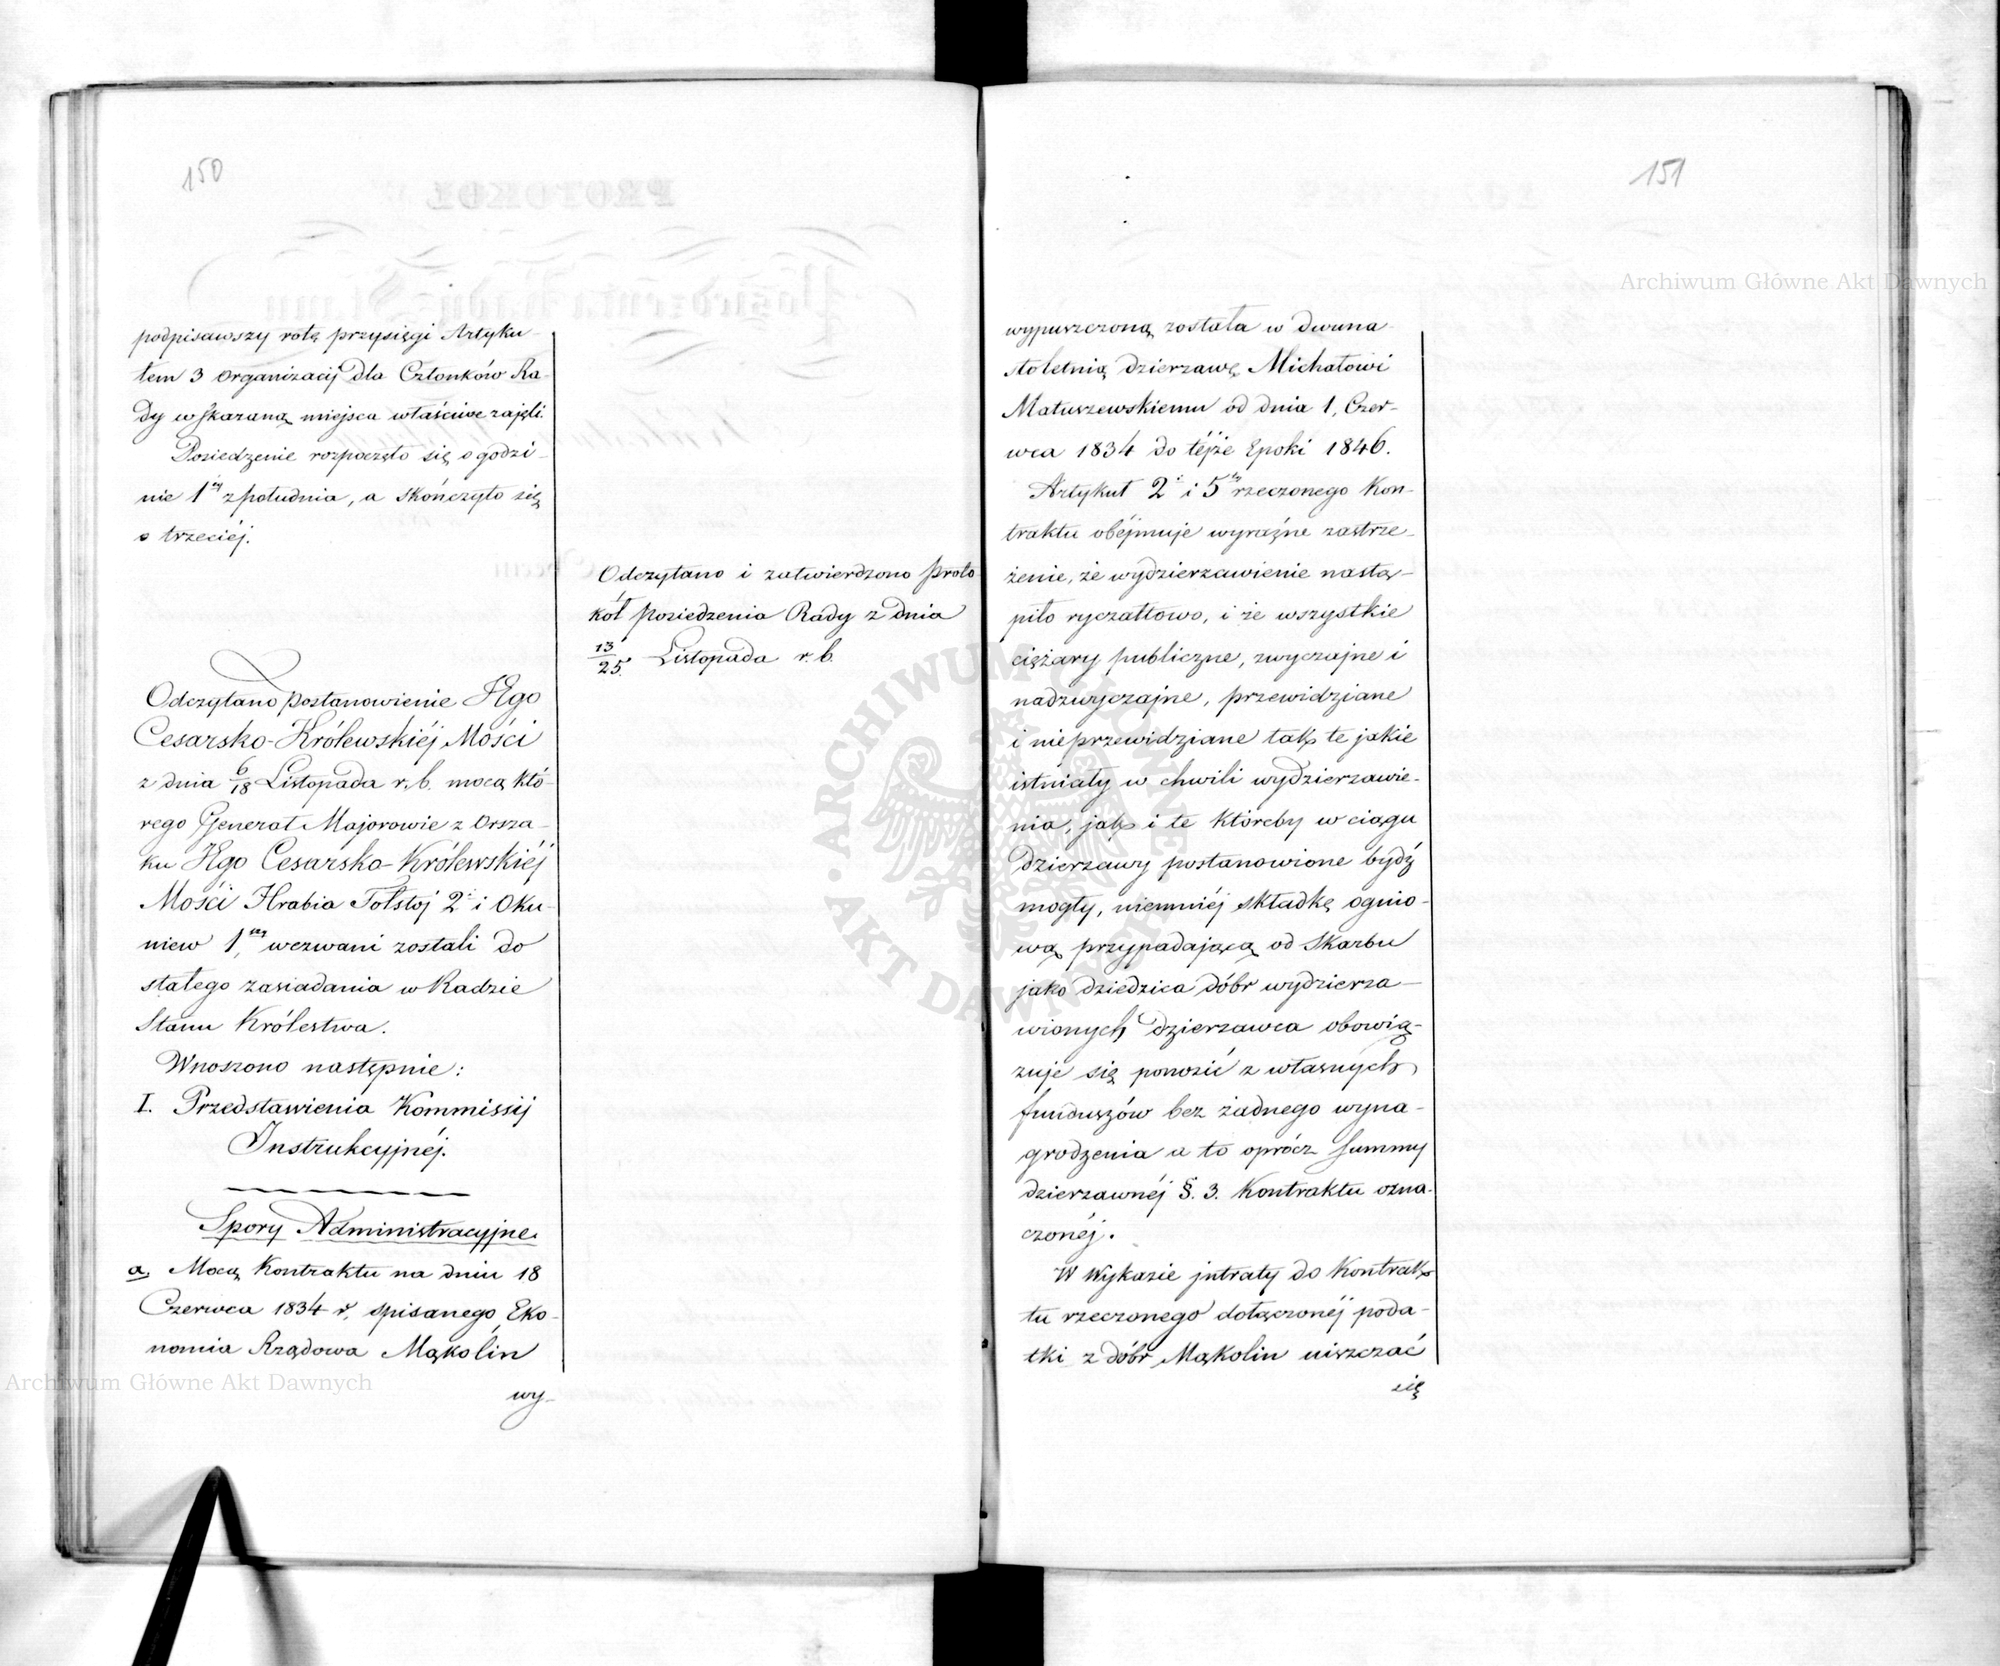 150
podpisawszy rotę przysięgi Artyku-
łem 3 Organizacij dla Członków Ra-
dy wskazaną miejsca właściwe zajęli.
Posiedzenie rozpoczęło się o godzi-
nie 1éj z południa, a skończyło się
o trzeciéj.
Odczytano i zatwierdzono proto
kół posiedzenia Rady z dnia
13/25. Listopada r. b.
Odczytano postanowienie JEgo
Cesarsko-Królewskiéj Mości
z dnia 6/18 Listopada r. b. mocą któ-
rego Generał Majorowie z Orsza-
ku JEgo Cesarsko-Królewskiéj
Mości Hrabia Tołstoj 2i i Oku-
niew 1, wezwani zostali do
stałego zasiadania w Radzie
Stanu Królestwa.
Wnoszono następnie:
I. Przedstawienia Kommissij
Instrukcyjnéj.
Spory Administracyjne.
a. Mocą Kontraktu na dniu 18
Czerwca 1834 r. spisanego, Eko-
nomia Rządowa Mąkolin
wy-
151
wypuszczoną została w dwuna-
stoletnią dzierzawę Michałowi
Matuszewskiemu od dnia 1, Czer-
wca 1834 do téjże Epoki 1846.
Artykuł 2i i 5ty rzeczonego Kon-
traktu obéjmuje wyraźne zastrze-
żenie, że wydzierzawienie nastą-
piło ryczałtowo, i że wszystkie
ciężary publiczne, zwyczajne i
nadzwyczajne, przewidziane
i nieprzewidziane tak te jakie
istniały w chwili wydzierzawie-
nia, jak i te któreby w ciągu
dzierzawy postanowione bydź
mogły, niemniéj składkę ognio-
wą przypadającą od Skarbu
jako dziedzica dóbr wydzierza-
wionych dzierzawca obowią-
zuje się ponosić z własnych
funduszów bez żadnego wyna-
grodzenia a to oprócz Summy
dzierzawnéj §. 3. Kontraktu ozna-
czonéj.
W Wykazie jntraty do Kontrak-
tu rzeczonego dołączonéj poda-
tki z dóbr Mąkolin uiszczać
się
Archiwum Główne Akt Dawnych
Archiwum Główne Akt Dawnych
ARCHIWUM GŁÓWNE AKT DAWNYCH